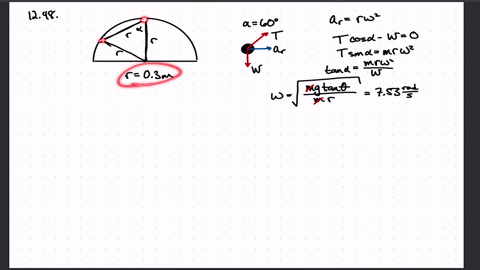 12.48.
α
r
r
r
r = 0.3m
α = 60°
T
aᵣ
W
aᵣ = rω²
Tcosα - W = 0
Tsinα = mrω²
tanα = mrω²/W
ω = √(mg tanθ / m r) = 7.53 rad/s